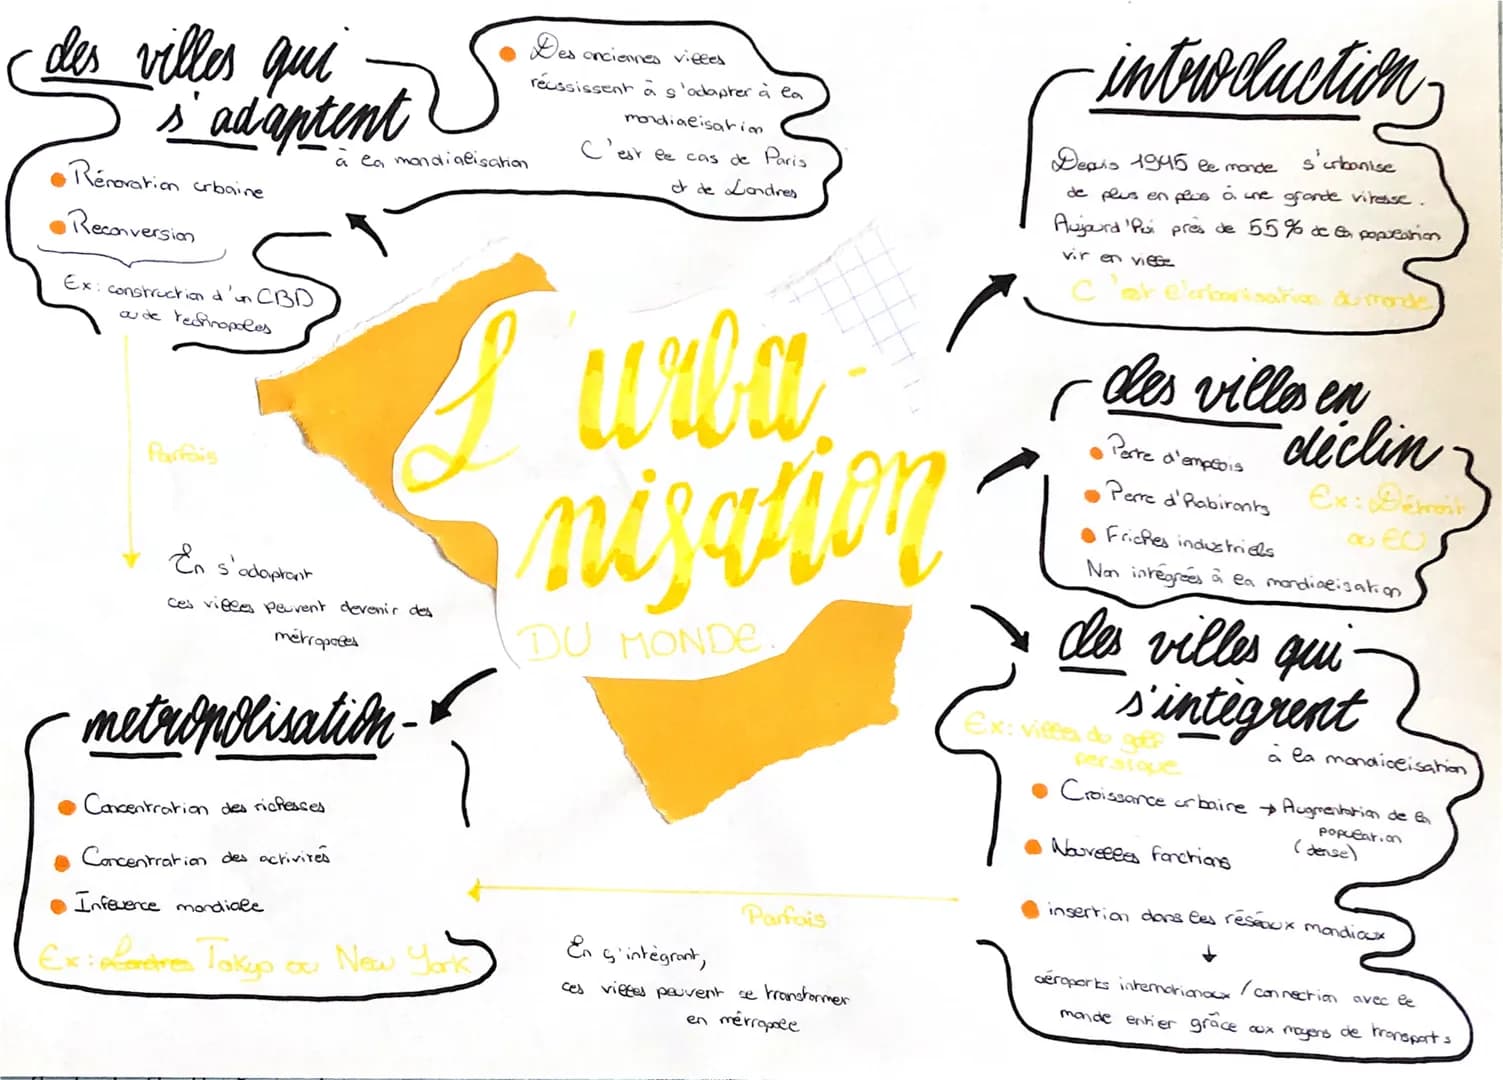 L'urba-
nisation
DU MONDE.
introduction
Depuis 1945 le monde s'urbanise
de plus en plus à une grande vitesse.
Aujourd'hui près de 55% de la population
vit en ville
C'est l'urbanisation du monde
des villes en
déclin
Perte d'emplois
Perte d'habitants
Ex: Détroit
au EU
Friches industriels
Non intégrées à la mondialisation
des villes qui
s'intègrent
à la mondialisation
Ex: villes du golf
persique
Croissance urbaine → Augmentation de la
population
(dense)
Nouvelles fonctions
insertion dans les réseaux mondiaux
↓
aéroports internationaux / connection avec le
monde entier grâce aux moyens de transports
Parfois
En s'intégrant,
ces villes peuvent se transformer
en métropole
metropolisation
Concentration des richesses
Concentration des activités
Infuence mondiale
Ex: Londres Tokyo ou New York
des villes qui
s'adaptent
à la mondialisation
Rénovation urbaine
Reconversion
Ex: construction d'un CBD
ou de technopoles
Des anciennes villes
réussissent à s'adapter à la
mondialisation
C'est le cas de Paris
et de Londres
Parfois
En s'adaptant
ces villes peuvent devenir des
métropoles